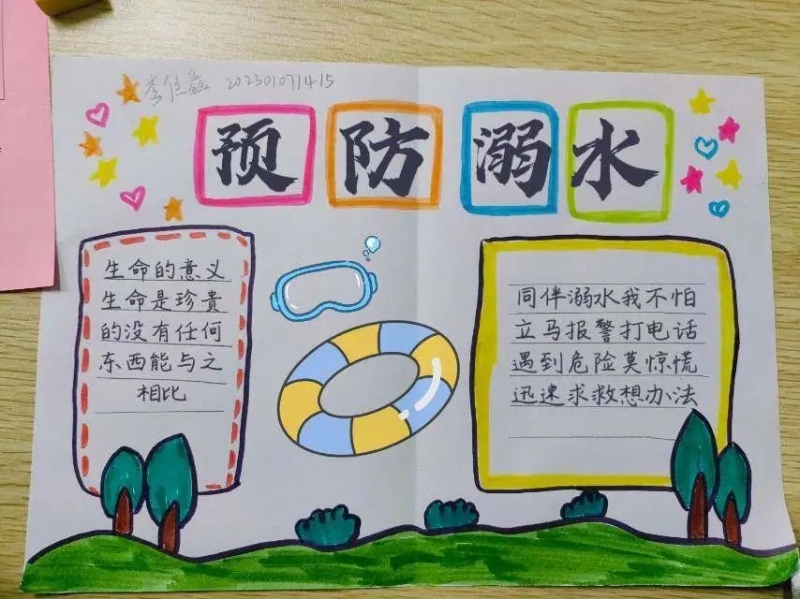 202301071415
预防溺水
生命的意义
生命是珍贵
的没有任何
东西能与之
相比
同伴溺水我不怕
立马报警打电话
遇到危险莫惊慌
迅速求救想办法